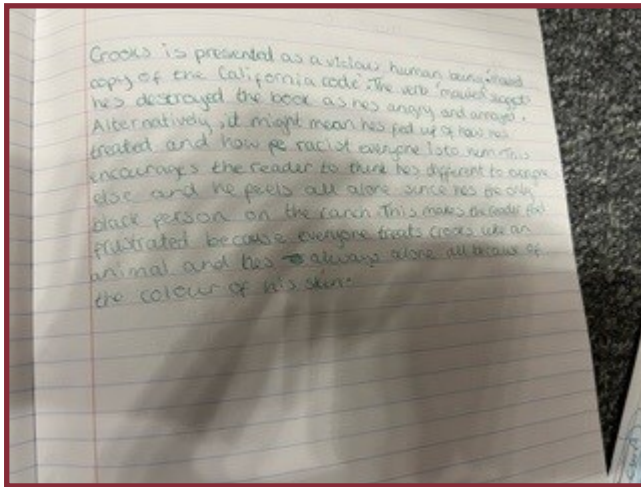 Crooks is presented as a vicious human being "mauled
copy of the California code". The verb "mauled" suggests
hes destroyed the book as hes angry and annoyed.
Alternatively, it might mean hes fed up of how hes
treated and how racist everyone is to him. This
encourages the reader to think hes different to everyone
else and he feels all alone since hes the only
black person on the ranch. This makes the reader feel
frustrated because everyone treats Crooks like an
animal and hes always alone all because of
the colour of his skin.